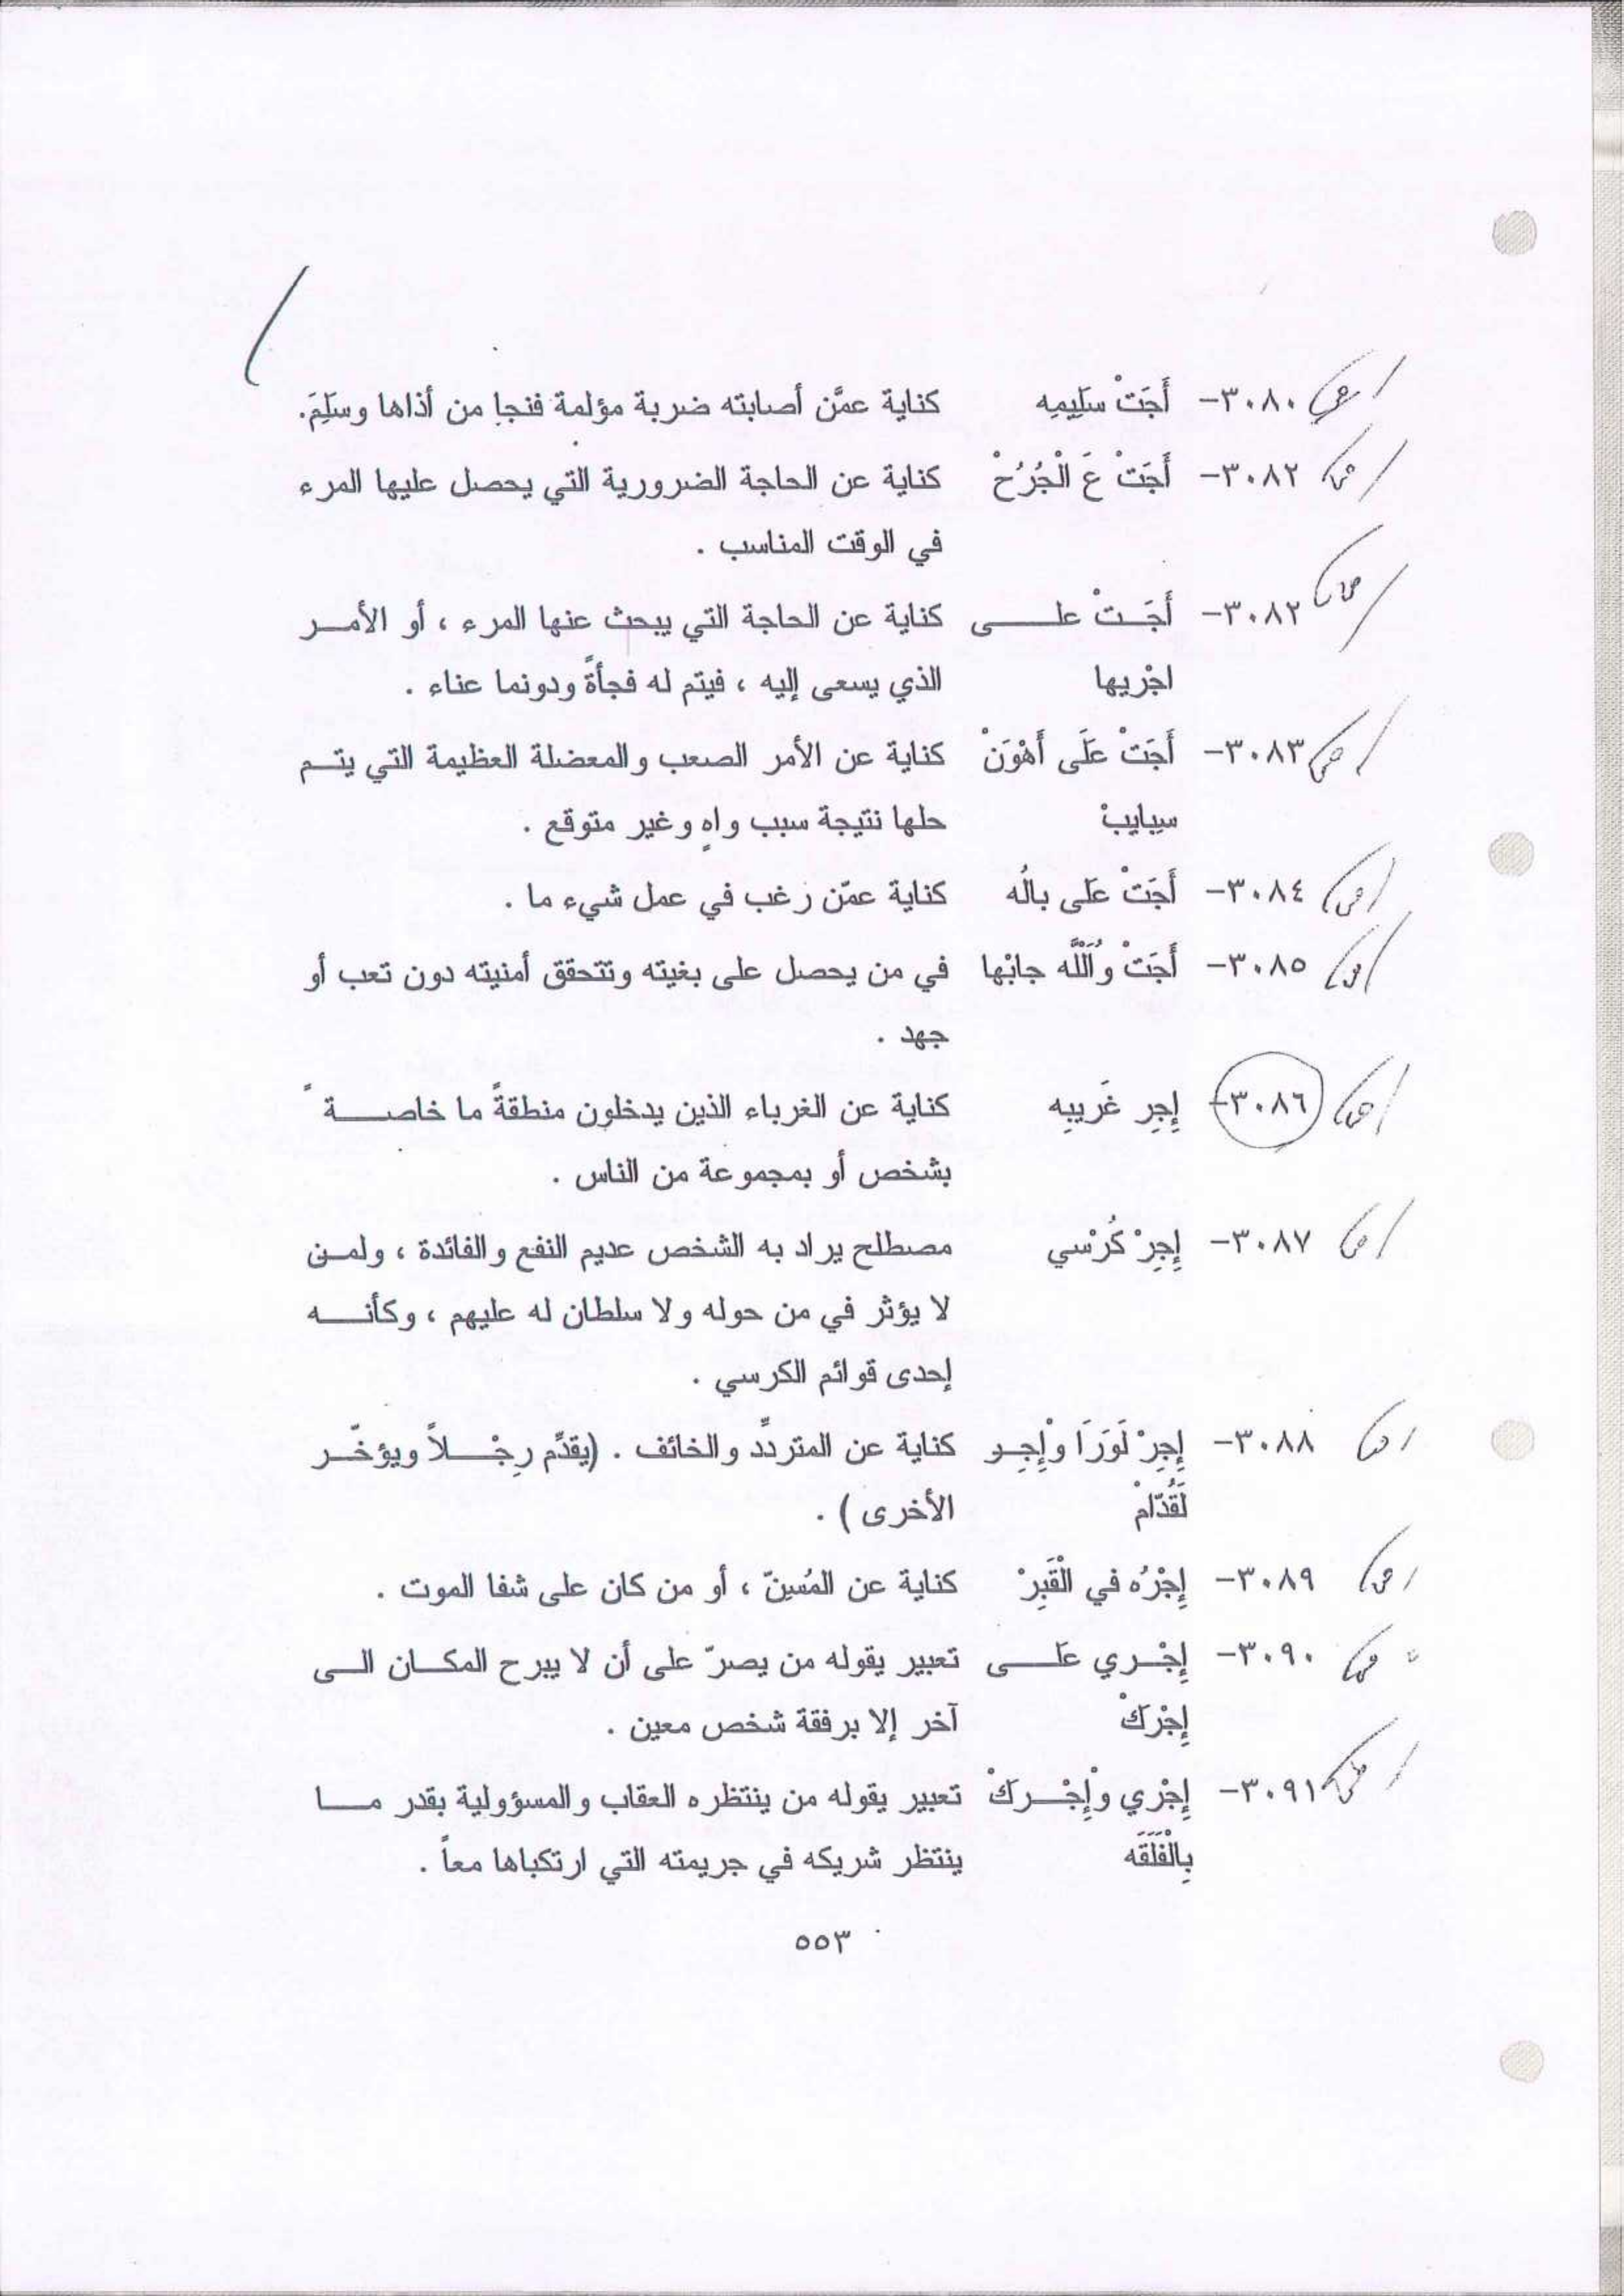 ٣٠٨٠- أَجَتْ سَلِيمِه كناية عمَّن أصابته ضربة مؤلمة فنجا من أذاها وسَلِمَ.
٣٠٨٢- أَجَتْ عَ الْجُرُحْ كناية عن الحاجة الضرورية التي يحصل عليها المرء
في الوقت المناسب .
٣٠٨٢- أَجَــتْ علــــى كناية عن الحاجة التي يبحث عنها المرء ، أو الأمــر
اجْريها الذي يسعى إليه ، فيتم له فجأةً ودونما عناء .
٣٠٨٣- أَجَتْ عَلَى أَهْوَنْ كناية عن الأمر الصعب والمعضلة العظيمة التي يتــم
سِبايِبْ حلها نتيجة سبب واهٍ وغير متوقع .
٣٠٨٤- أَجَتْ عَلى بالُه كناية عمّن رغب في عمل شيء ما .
٣٠٨٥- أَجَتْ وُاَللَّه جابْها في من يحصل على بغيته وتتحقق أمنيته دون تعب أو
جهد .
٣٠٨٦- إِجِر غَرِيبِه كناية عن الغرباء الذين يدخلون منطقةً ما خاصــــة ً
بشخص أو بمجموعة من الناس .
٣٠٨٧- إِجِرْ كُرْسي مصطلح يراد به الشخص عديم النفع والفائدة ، ولمــن
لا يؤثر في من حوله ولا سلطان له عليهم ، وكأنــــه
إحدى قوائم الكرسي .
٣٠٨٨- إِجِرْ لَوَرَا وْإِجِــر كناية عن المتردِّد والخائف . (يقدِّم رِجْـــلاً ويؤخّــر
لَقُدّامْ الأخرى ) .
٣٠٨٩- إِجْرُه في الْقَبِرْ كناية عن المُسِنّ ، أو من كان على شفا الموت .
٣٠٩٠- إِجْــري عَلــــى تعبير يقوله من يصرّ على أن لا يبرح المكــان الــى
إِجْرَكْ آخر إلا برفقة شخص معين .
٣٠٩١- إِجْرْي وْإِجْــرِكْ تعبير يقوله من ينتظره العقاب والمسؤولية بقدر مـــا
بِالْفَلَقَه ينتظر شريكه في جريمته التي ارتكباها معاً .
٥٥٣